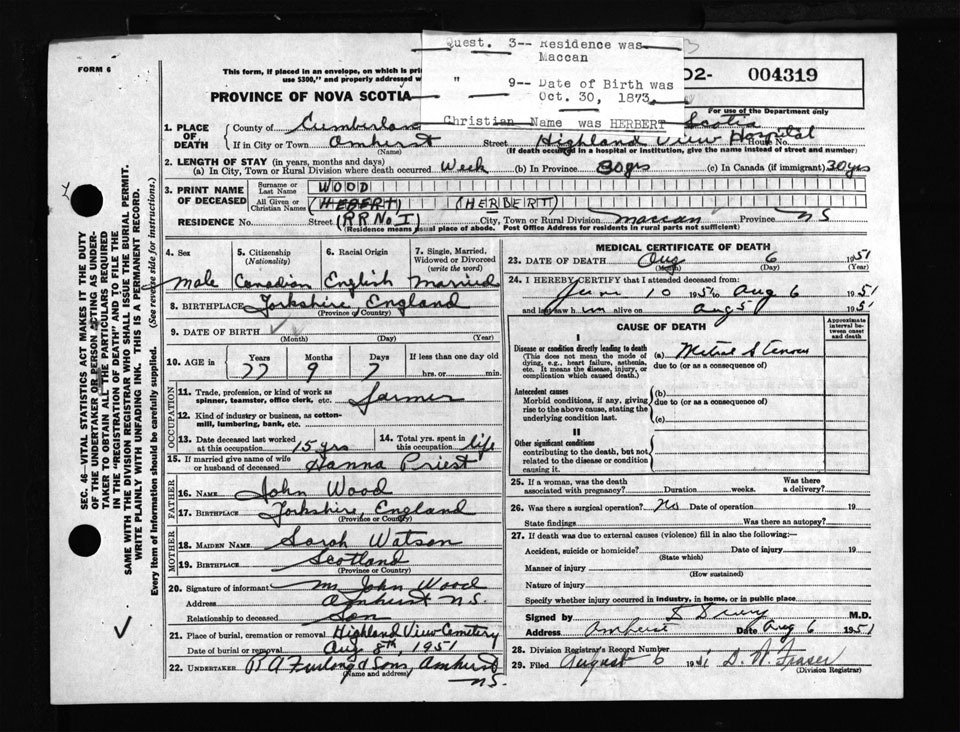 FORM 6
This form, if placed in an envelope, on which is
use $300," and properly addressed
PROVINCE OF NOVA SCOTIA
Quest. 3-- Residence was
Maccan
" 9-- Date of Birth was
Oct. 30, 1873
Christian Name was HERBERT
02- 004319
For use of the Department only
Scotia
1. PLACE OF DEATH
County of Cumberland
If in City or Town Amherst Street Highland View Hospital House No.
(Name) (If death occurred in a hospital or institution, give the name instead of street and number)
2. LENGTH OF STAY (in years, months and days)
(a) In City, Town or Rural Division where death occurred Week (b) In Province 30 yrs (c) In Canada (if immigrant) 30 yrs
3. PRINT NAME OF DECEASED
Surname or Last Name WOOD
All Given or Christian Names (HEBERT) (HERBERT)
RESIDENCE No. Street (RR No I) City, Town or Rural Division Maccan Province NS
(Residence means usual place of abode. Post Office Address for residents in rural parts not sufficient)
4. Sex
Male
5. Citizenship (Nationality)
Canadian
6. Racial Origin
English
7. Single, Married, Widowed or Divorced (write the word)
Married
8. BIRTHPLACE Yorkshire England
(Province or Country)
9. DATE OF BIRTH
(Month) (Day) (Year)
10. AGE in
Years Months Days If less than one day old
77 9 7 hrs. or min.
OCCUPATION
11. Trade, profession, or kind of work as spinner, teamster, office clerk, etc. Farmer
12. Kind of industry or business, as cotton-mill, lumbering, bank, etc.
13. Date deceased last worked at this occupation 15 yrs
14. Total yrs. spent in this occupation life
15. If married give name of wife or husband of deceased Hanna Priest
FATHER
16. NAME John Wood
17. BIRTHPLACE Yorkshire, England
(Province or Country)
MOTHER
18. MAIDEN NAME Sarah Watson
19. BIRTHPLACE Scotland
(Province or Country)
20. Signature of informant Mr John Wood
Address Amherst N.S.
Relationship to deceased Son
21. Place of burial, cremation or removal Highland View Cemetery
Date of burial or removal Aug 8th, 1951
22. UNDERTAKER R A Furlong & Sons, Amherst
NS.
(Name and address)
MEDICAL CERTIFICATE OF DEATH
23. DATE OF DEATH Aug 6 1951
(Month) (Day) (Year)
24. I HEREBY CERTIFY that I attended deceased from:
June 10 1951 to Aug 6 1951
and last saw him alive on Aug 5 1951
CAUSE OF DEATH
Approximate interval between onset and death
I
Disease or condition directly leading to death
(This does not mean the mode of dying, e.g., heart failure, asthenia, etc. It means the disease, injury, or complication which caused death.)
(a) Mitral Stenosis
due to (or as a consequence of)
Antecedent causes
Morbid conditions, if any, giving rise to the above cause, stating the underlying condition last.
(b)
due to (or as a consequence of)
(c)
II
Other significant conditions
contributing to the death, but not related to the disease or condition causing it.
25. If a woman, was the death associated with pregnancy? Duration weeks. Was there a delivery?
26. Was there a surgical operation? No Date of operation 19
State findings Was there an autopsy?
27. If death was due to external causes (violence) fill in also the following:—
Accident, suicide or homicide? Date of injury 19
(State which)
Manner of injury
(How sustained)
Nature of injury
Specify whether injury occurred in industry, in home, or in public place
Signed by M.D.
Address Amherst Date Aug 6 1951
28. Division Registrar's Record Number
29. Filed August 6 1951 D. W. Fraser
(Division Registrar)
SEC. 46—VITAL STATISTICS ACT MAKES IT THE DUTY
OF THE UNDERTAKER OR PERSON ACTING AS UNDER-
TAKER TO OBTAIN ALL THE PARTICULARS REQUIRED
IN THE "REGISTRATION OF DEATH" AND TO FILE THE
SAME WITH THE DIVISION REGISTRAR WHO SHALL ISSUE THE BURIAL PERMIT.
WRITE PLAINLY WITH UNFADING INK. THIS IS A PERMANENT RECORD.
Every item of Information should be carefully supplied. (See reverse side for instructions.)